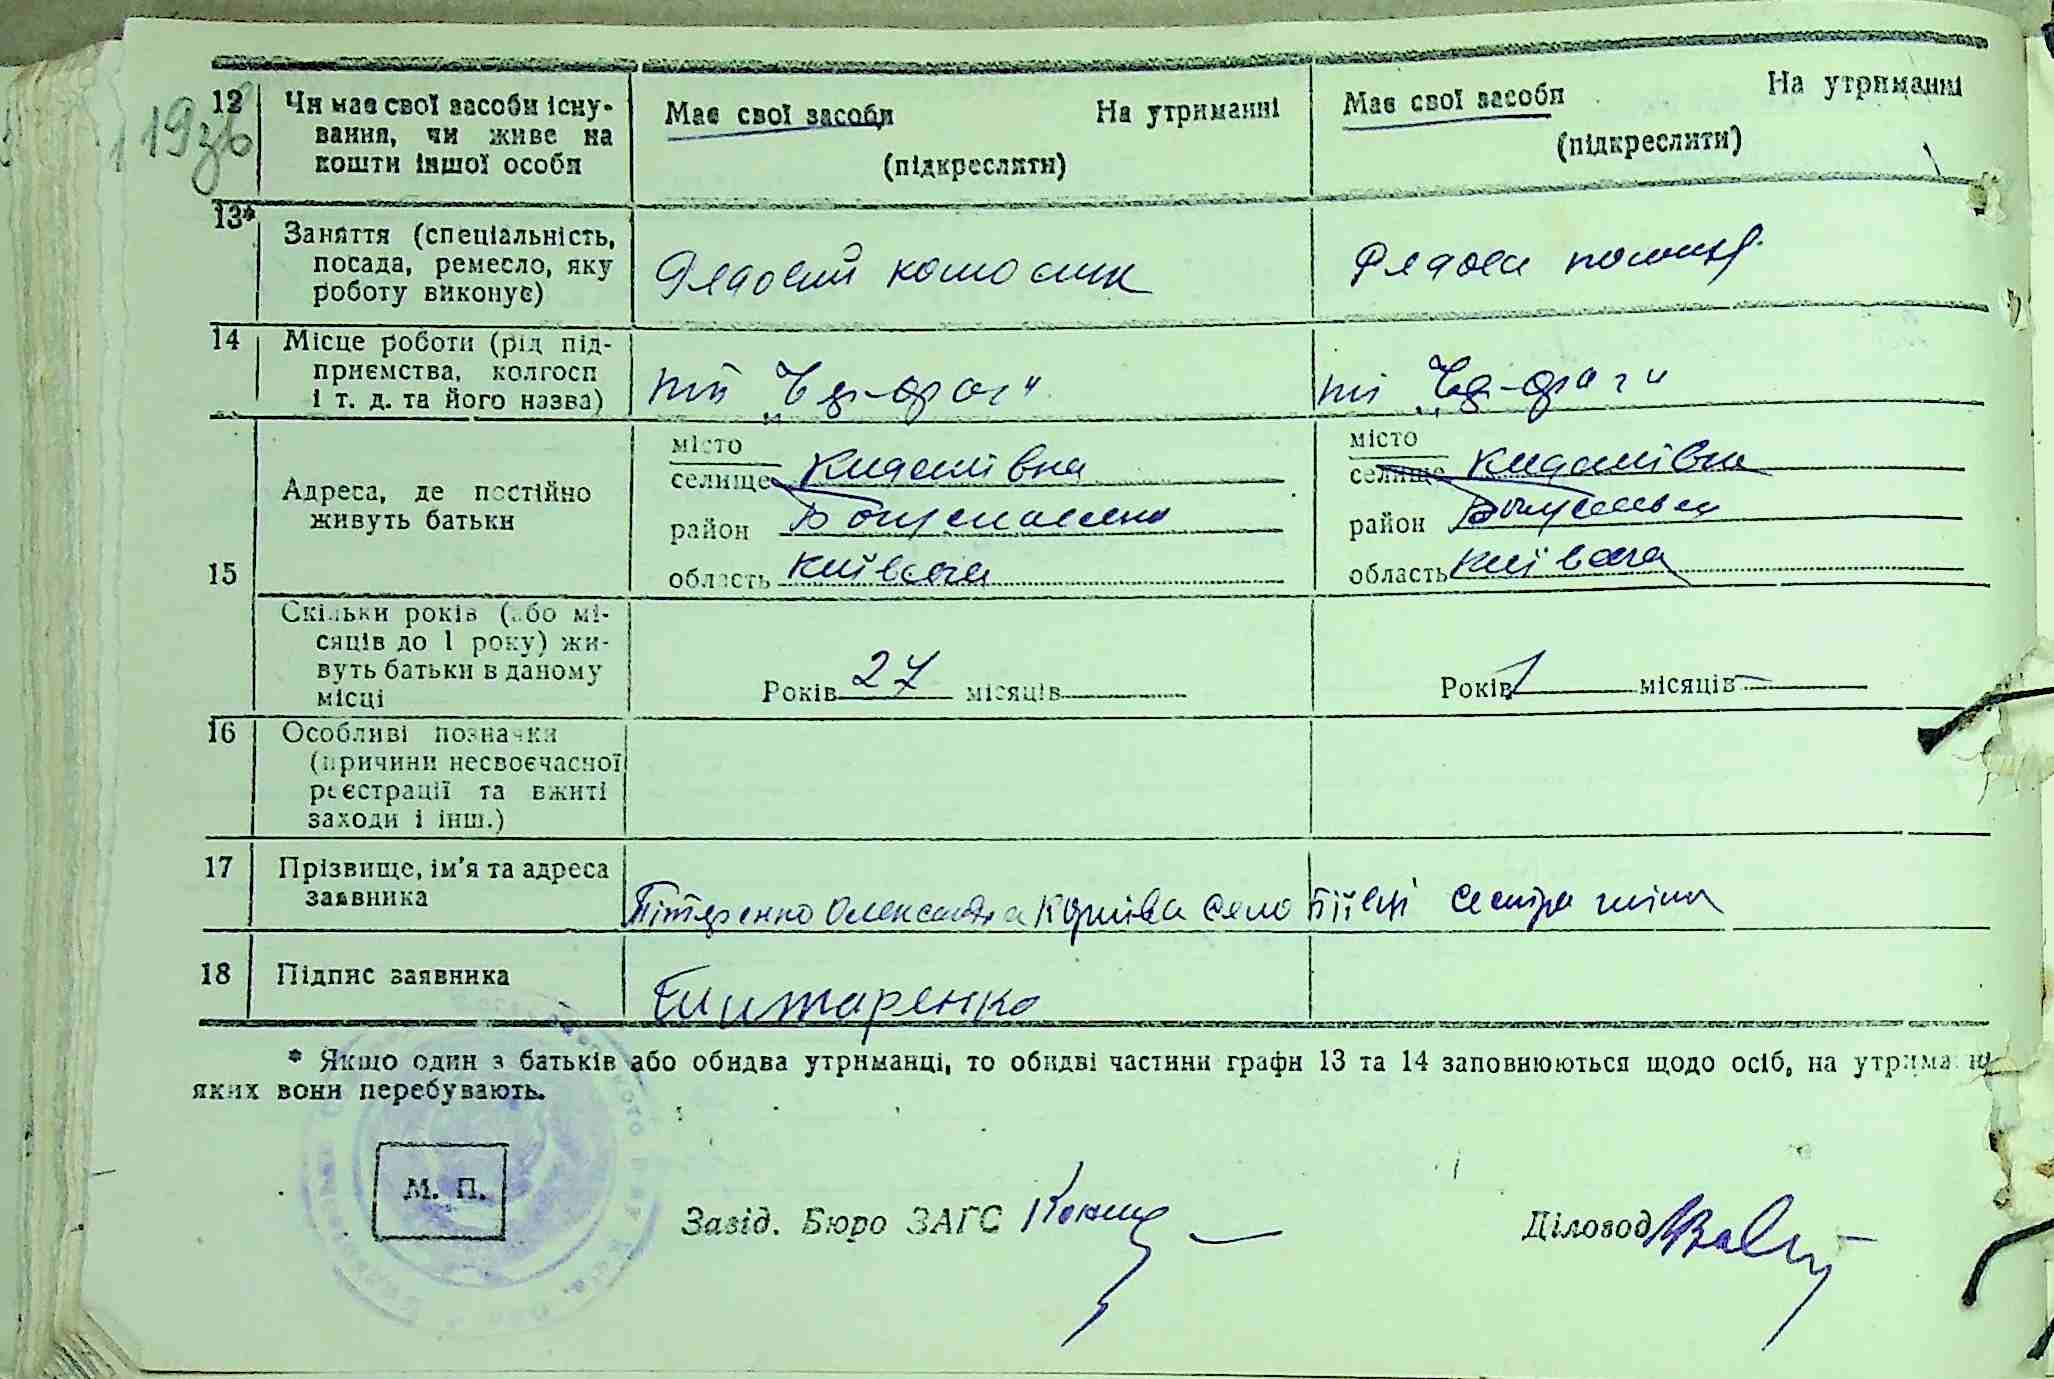 193в
12 Чи має свої засоби існу-
вання, чи живе на
кошти іншої особи
Має свої засоби На утриманні
(підкреслити)
Має свої засоби На утриманні
(підкреслити)
13*
Заняття (спеціальність,
посада, ремесло, яку
роботу виконує)
Рядовий
Рядова
14 Місце роботи (рід під-
приємства, колгосп
і т. д. та його назва)
15
Адреса, де постійно
живуть батьки
місто
селище Киданівка
район Богуславський
область Київська
місто
селище Киданівка
район Богуславський
область Київська
Скільки років (або мі-
сяців до 1 року) жи-
вуть батьки в даному
місці
Років 27 місяців
Років 1 місяців —
16 Особливі позначки
(причини несвоєчасної
реєстрації та вжиті
заходи і інш.)
17 Прізвище, ім'я та адреса
заявника
Олександра село Бієвці сестра
18 Підпис заявника
* Якщо один з батьків або обидва утриманці, то обидві частини графи 13 та 14 заповнюються щодо осіб, на утриманні
яких вони перебувають.
М. П.
Завід. Бюро ЗАГС
Діловод